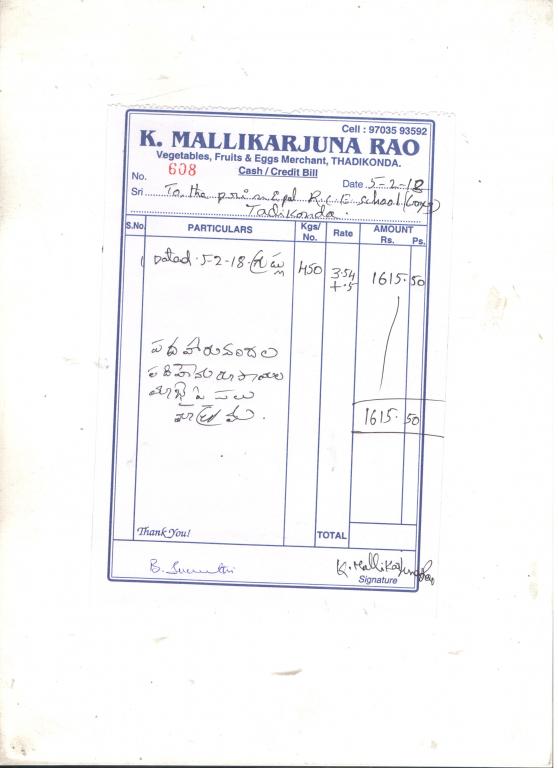 Cell : 97035 93592
K. MALLIKARJUNA RAO
Vegetables, Fruits & Eggs Merchant, THADIKONDA.
No. 608 Cash / Credit Bill
Date 5-2-18
Sri To the principal R.C.E. school (Boys)
Tadikonda.
S.No. PARTICULARS Kgs/ No. Rate AMOUNT Rs. Ps.
1 Dated 5-2-18 గ్రుడ్లు 450 3.54 1615.50
+.5
పదహారువందల
పదిహేను రూపాయల
యాభై పైసలు
మాత్రమే.
1615.50
Thank You!
TOTAL
K. Mallikarjuna Rao
Signature